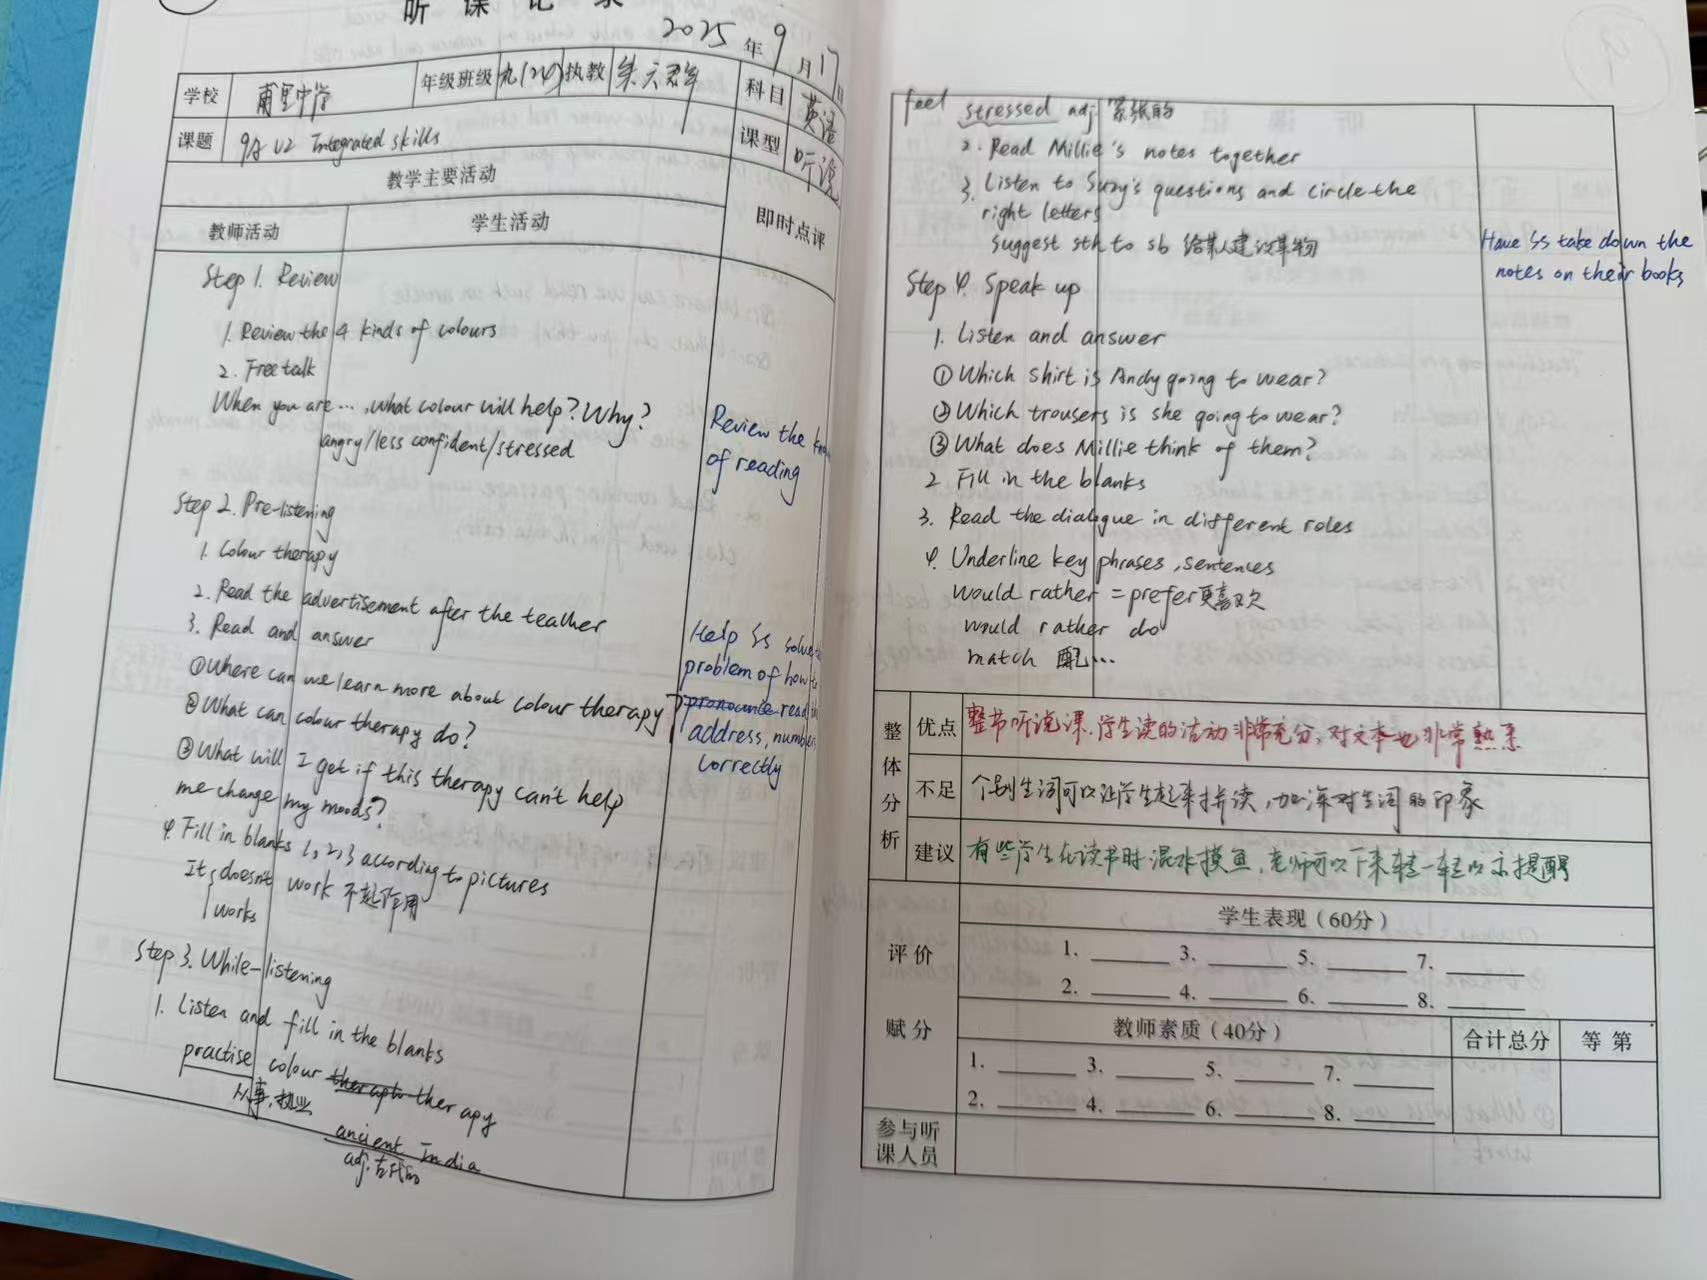 听 课 记 录
2025 年 9 月 17 日
学校 甫里中学 年级班级 九(24) 执教 朱天君 科目 英语
课题 9A U2 Integrated skills 课型 听说
教学主要活动
即时点评
教师活动 学生活动
Step 1. Review
1. Review the 4 kinds of colours
2. Free talk
When you are ..., what colour will help? Why?
angry/less confident/stressed
Review the
of reading
Step 2. Pre-listening
1. Colour therapy
2. Read the advertisement after the teacher
3. Read and answer
①Where can we learn more about colour therapy?
②What can colour therapy do?
③What will I get if this therapy can't help
me change my moods?
Help Ss solve
problem of how
pronounce read
address, number
correctly
4. Fill in blanks 1, 2, 3 according to pictures
It doesn't work 不起作用
works
Step 3. While-listening
1. Listen and fill in the blanks
practise colour therapy
从事,执业
ancient India
adj. 古代的
feel stressed adj. 紧张的
2. Read Millie's notes together
3. Listen to Suzy's questions and circle the
right letters
suggest sth to sb 给某人建议某物
Have Ss take down the
notes on their books
Step 4. Speak up
1. Listen and answer
①Which shirt is Andy going to wear?
②Which trousers is she going to wear?
③What does Millie think of them?
2 Fill in the blanks
3. Read the dialogue in different roles
4. Underline key phrases, sentences
would rather = prefer更喜欢
would rather do
match 配...
整体分析
优点 整节听说课,学生读的活动非常充分,对文本也非常熟悉
不足 个别生词可以让学生起来拼读,加深对生词的印象
建议 有些学生在读书时混水摸鱼,老师可以下来转一转以示提醒
评价赋分
学生表现(60分)
1. 3. 5. 7.
2. 4. 6. 8.
教师素质(40分) 合计总分 等第
1. 3. 5. 7.
2. 4. 6. 8.
参与听
课人员